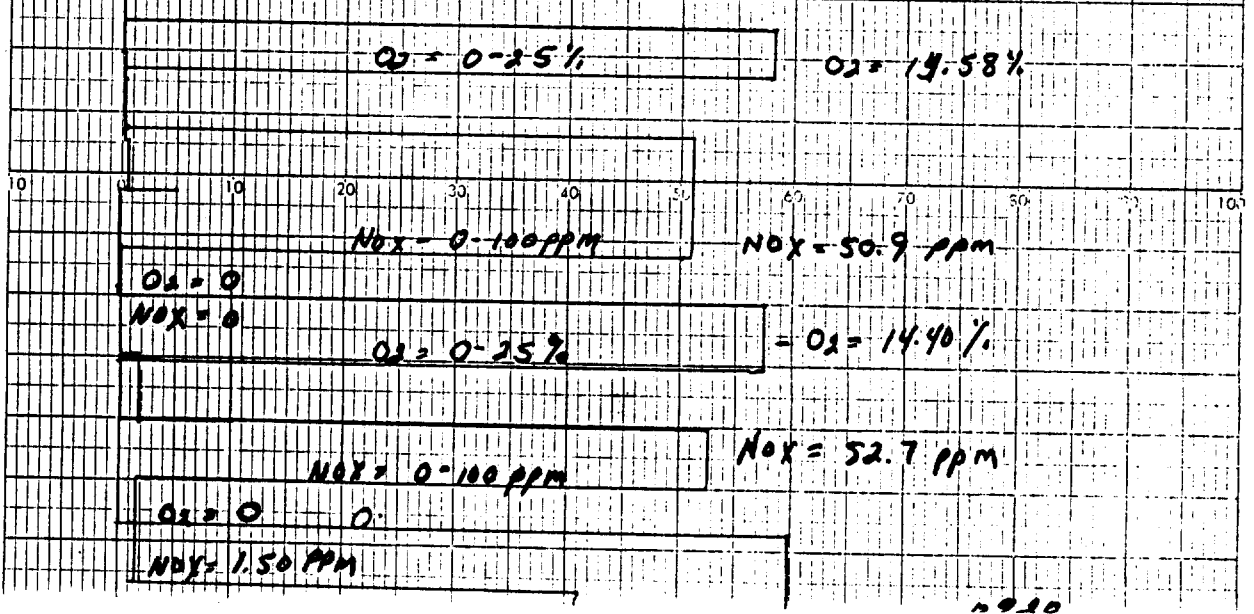 O2 = 0-25% O2 = 14.58%
10 0 10 20 30 40 50 60 70 80 100
NOX - 0-100 ppm NOX = 50.9 ppm
O2 = 0
NOX = 0
O2 = 0-25% = O2 = 14.40 %
NOX = 52.7 ppm
NOX = 0-100 ppm
O2 = 0 0.
NOX = 1.50 PPM